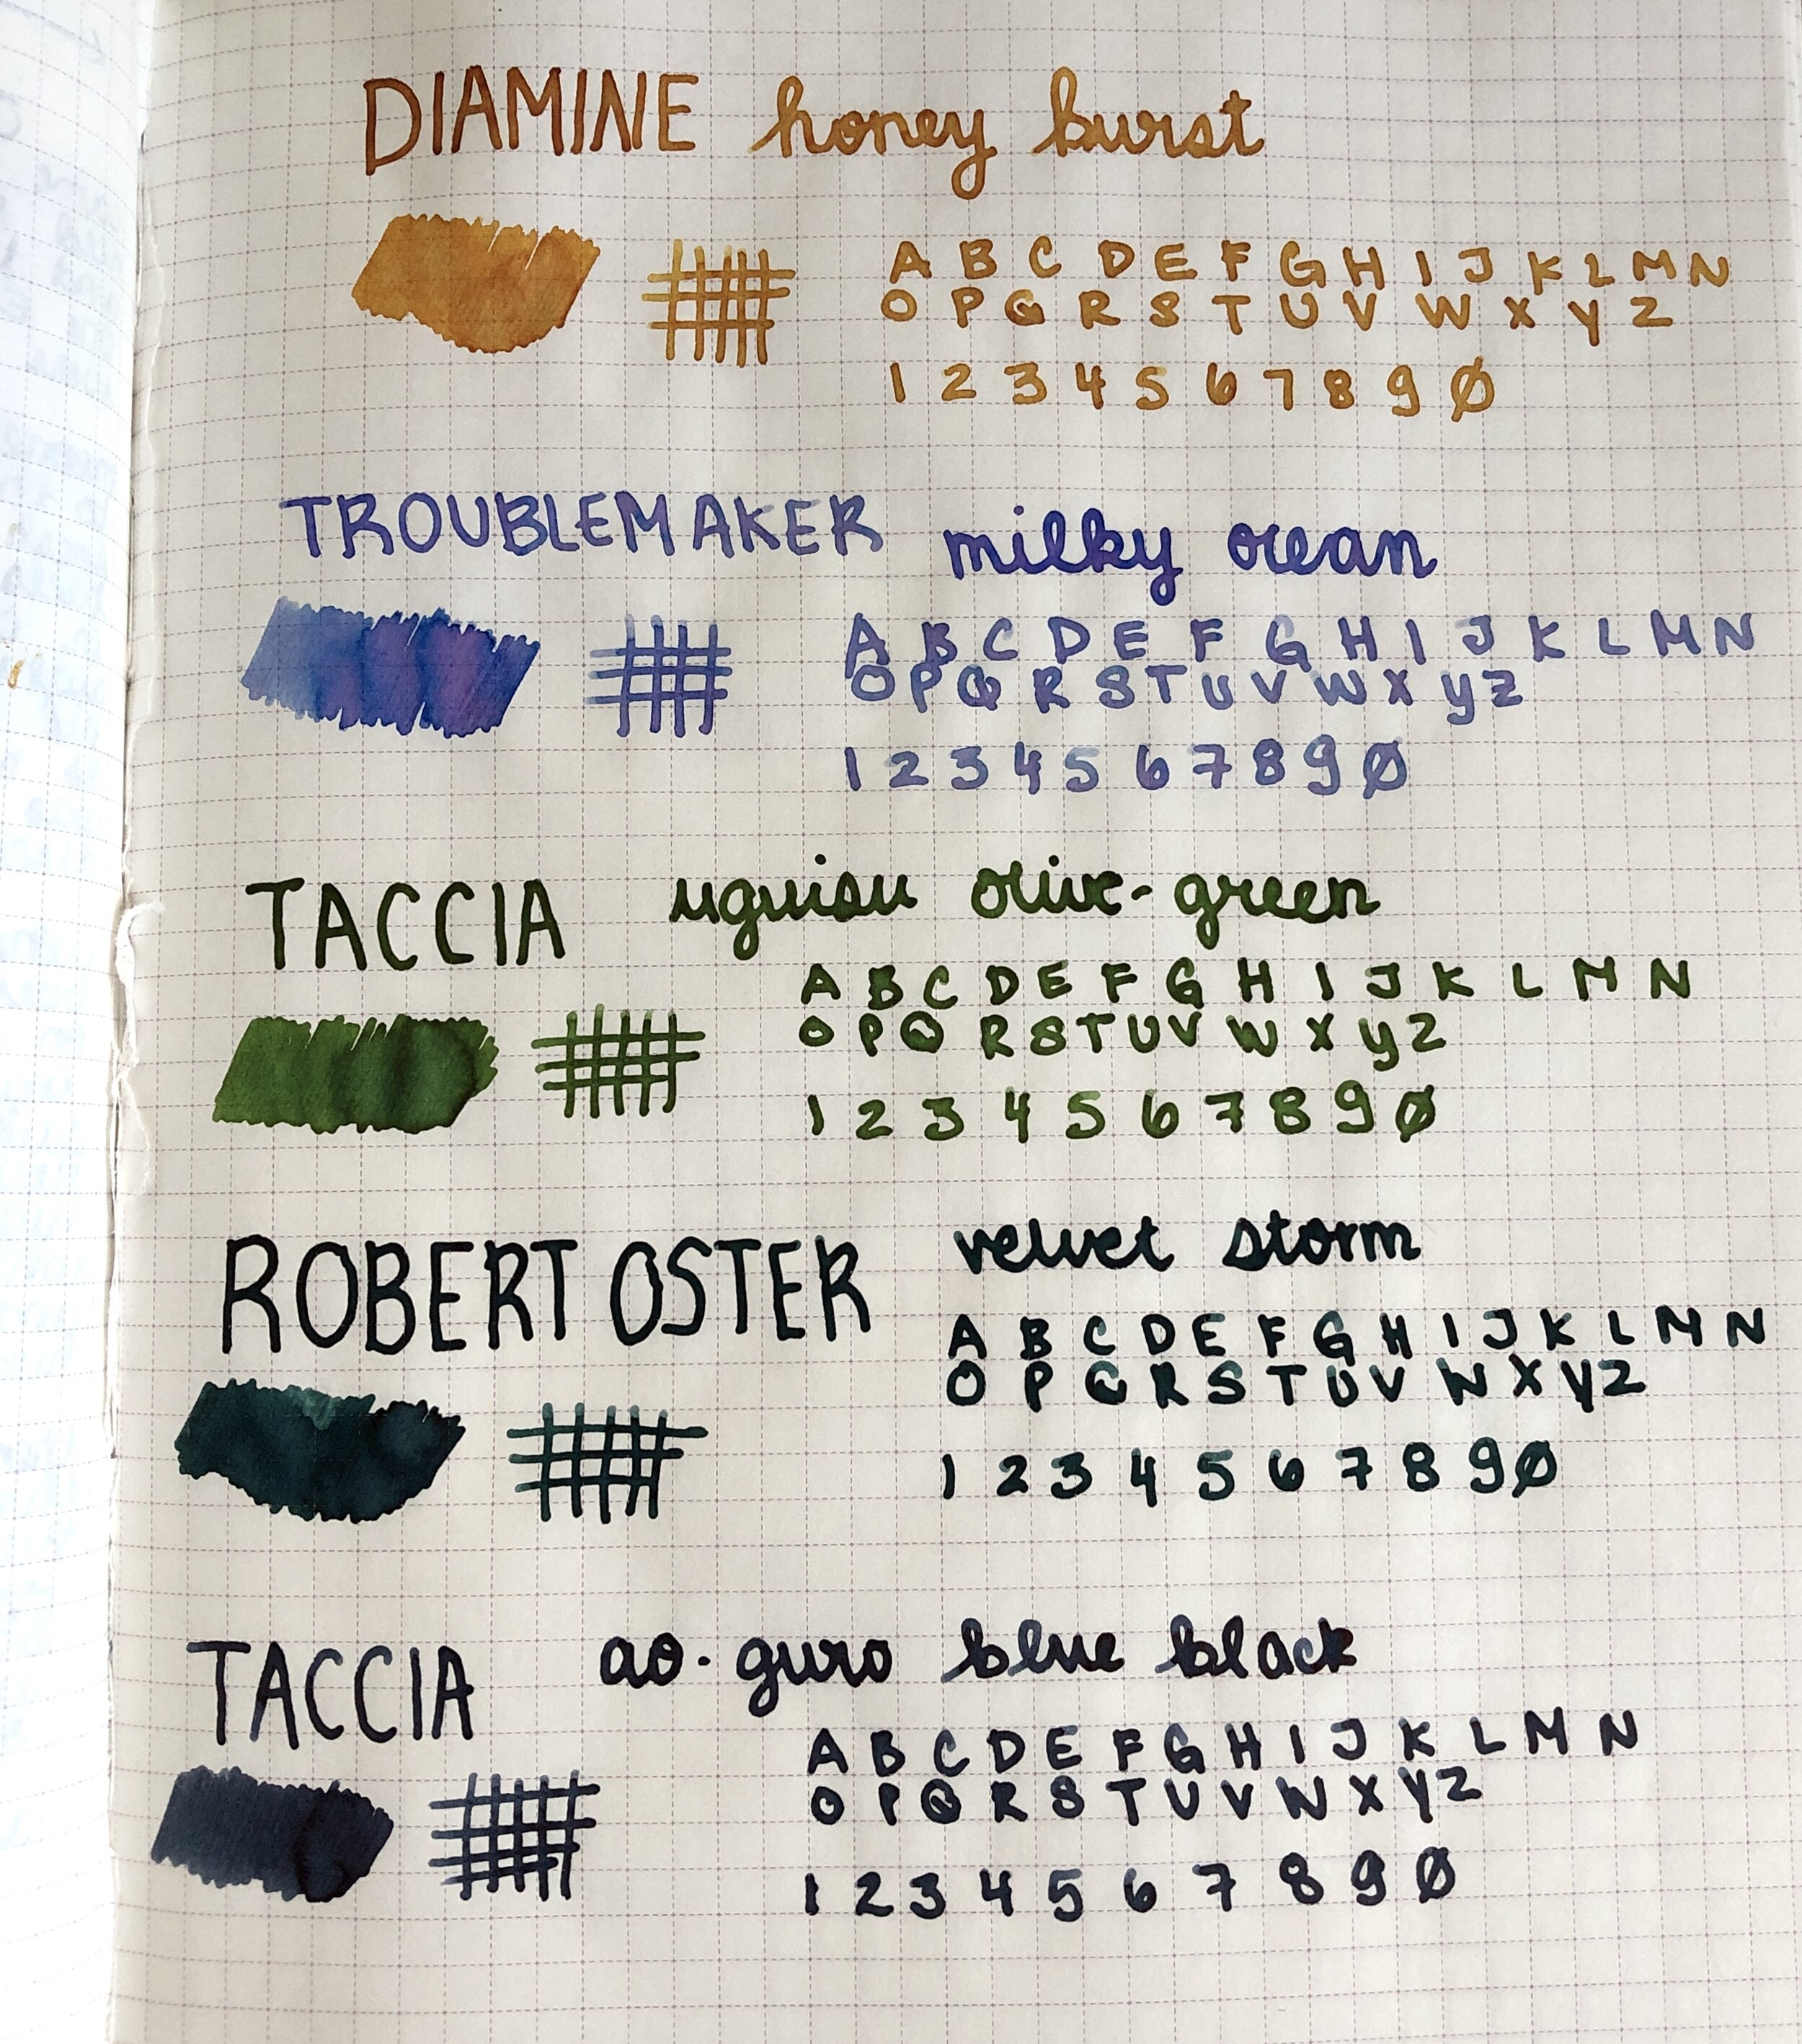 DIAMINE honey burst
A B C D E F G H I J K L M N
O P Q R S T U V W X Y Z
1 2 3 4 5 6 7 8 9 0
TROUBLEMAKER milky ocean
A B C D E F G H I J K L M N
O P Q R S T U V W X Y Z
1 2 3 4 5 6 7 8 9 0
TACCIA uguisu olive-green
A B C D E F G H I J K L M N
O P Q R S T U V W X Y Z
1 2 3 4 5 6 7 8 9 0
ROBERT OSTER velvet storm
A B C D E F G H I J K L M N
O P Q R S T U V W X Y Z
1 2 3 4 5 6 7 8 9 0
TACCIA ao-guro blue black
A B C D E F G H I J K L M N
O P Q R S T U V W X Y Z
1 2 3 4 5 6 7 8 9 0